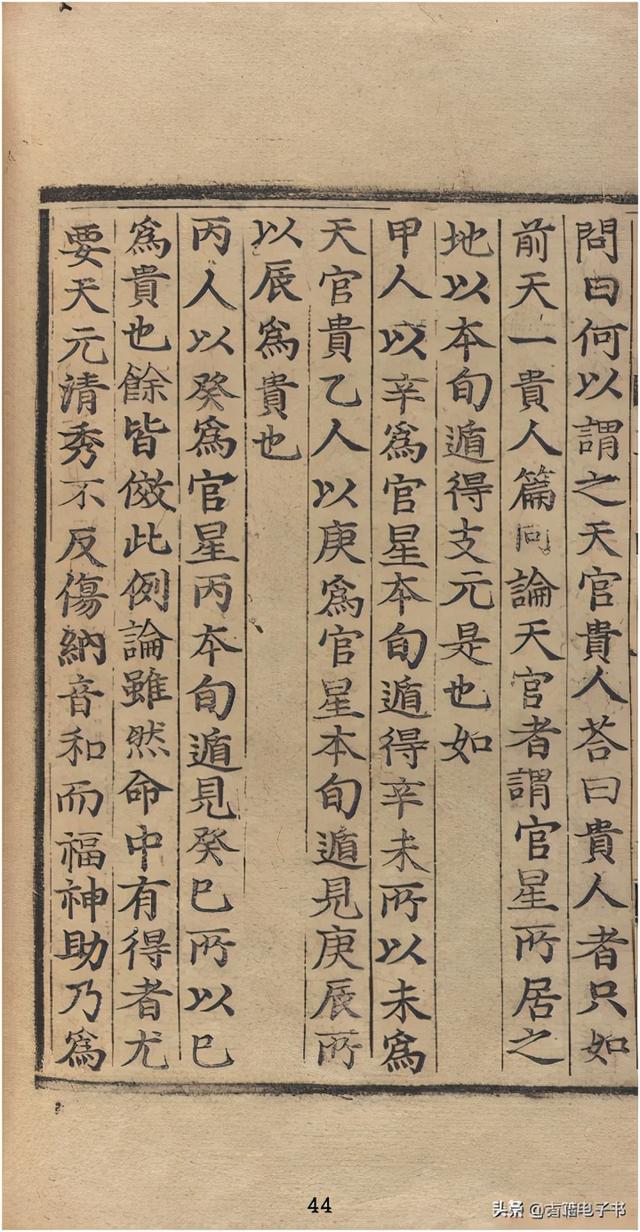 問曰何以謂之天官貴人荅曰貴人者只如
前天一貴人篇同論天官者謂官星所居之
地以本旬遁得支元是也如
甲人以辛爲官星本旬遁得辛未所以未爲
天官貴乙人以庚爲官星本旬遁見庚辰所
以辰爲貴也
丙人以癸爲官星丙本旬遁見癸巳所以巳
爲貴也餘皆倣此例論雖然命中有得者尤
要天元清秀不反傷納音和而福神助乃爲
44
头条 @有猫电子书